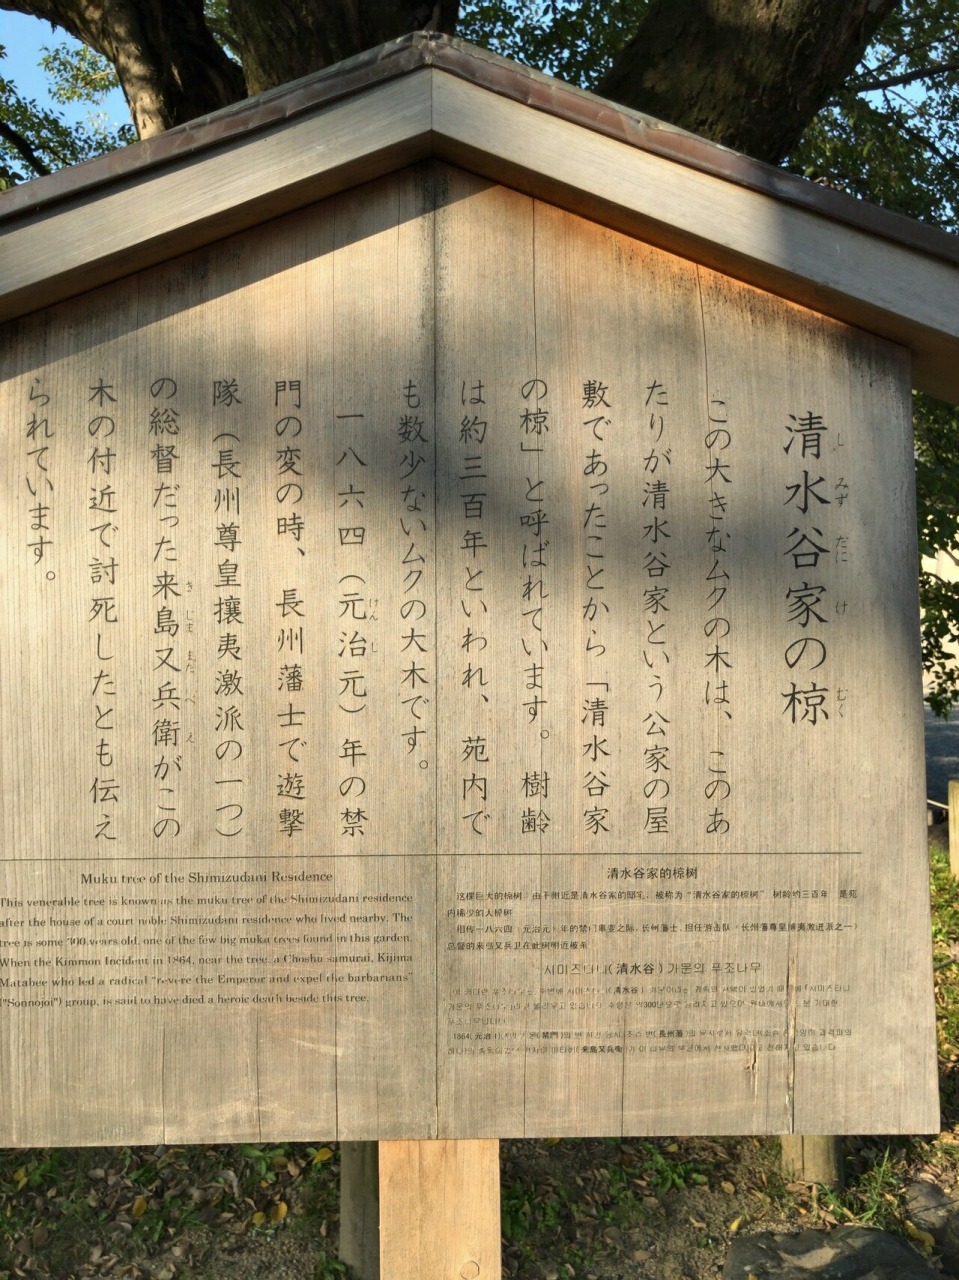 清水谷家の椋
この大きなムクの木は、このあ
たりが清水谷家という公家の屋
敷であったことから「清水谷家
の椋」と呼ばれています。樹齢
は約三百年といわれ、苑内で
も数少ないムクの大木です。
一八六四(元治元)年の禁
門の変の時、長州藩士で遊撃
隊(長州尊皇攘夷激派の一つ)
の総督だった来島又兵衛がこの
木の付近で討死したとも伝え
られています。
Muku tree of the Shimizudani Residence
This venerable tree is known as the muku tree of the Shimizudani residence
after the house of a court noble Shimizudani residence who lived nearby. The
tree is some 300 years old, one of the few big muku trees found in this garden.
When the Kinmon Incident in 1864, near the tree, a Choshu samurai, Kijima
Matabee who led a radical "revere the Emperor and expel the barbarians"
("Sonnojoi") group, is said to have died a heroic death beside this tree.
清水谷家的椋树
这棵巨大的椋树 由于附近是清水谷家的邸宅，被称为"清水谷家的椋树" 树龄约三百年 是苑
内稀少的大椋树
相传一八六四（元治元）年的禁门事变之际，长州藩士，担任游击队（长州藩尊皇攘夷激进派之一）
总督的来岛又兵卫在此树附近被杀
시미즈다니(清水谷) 가문의 푸조나무